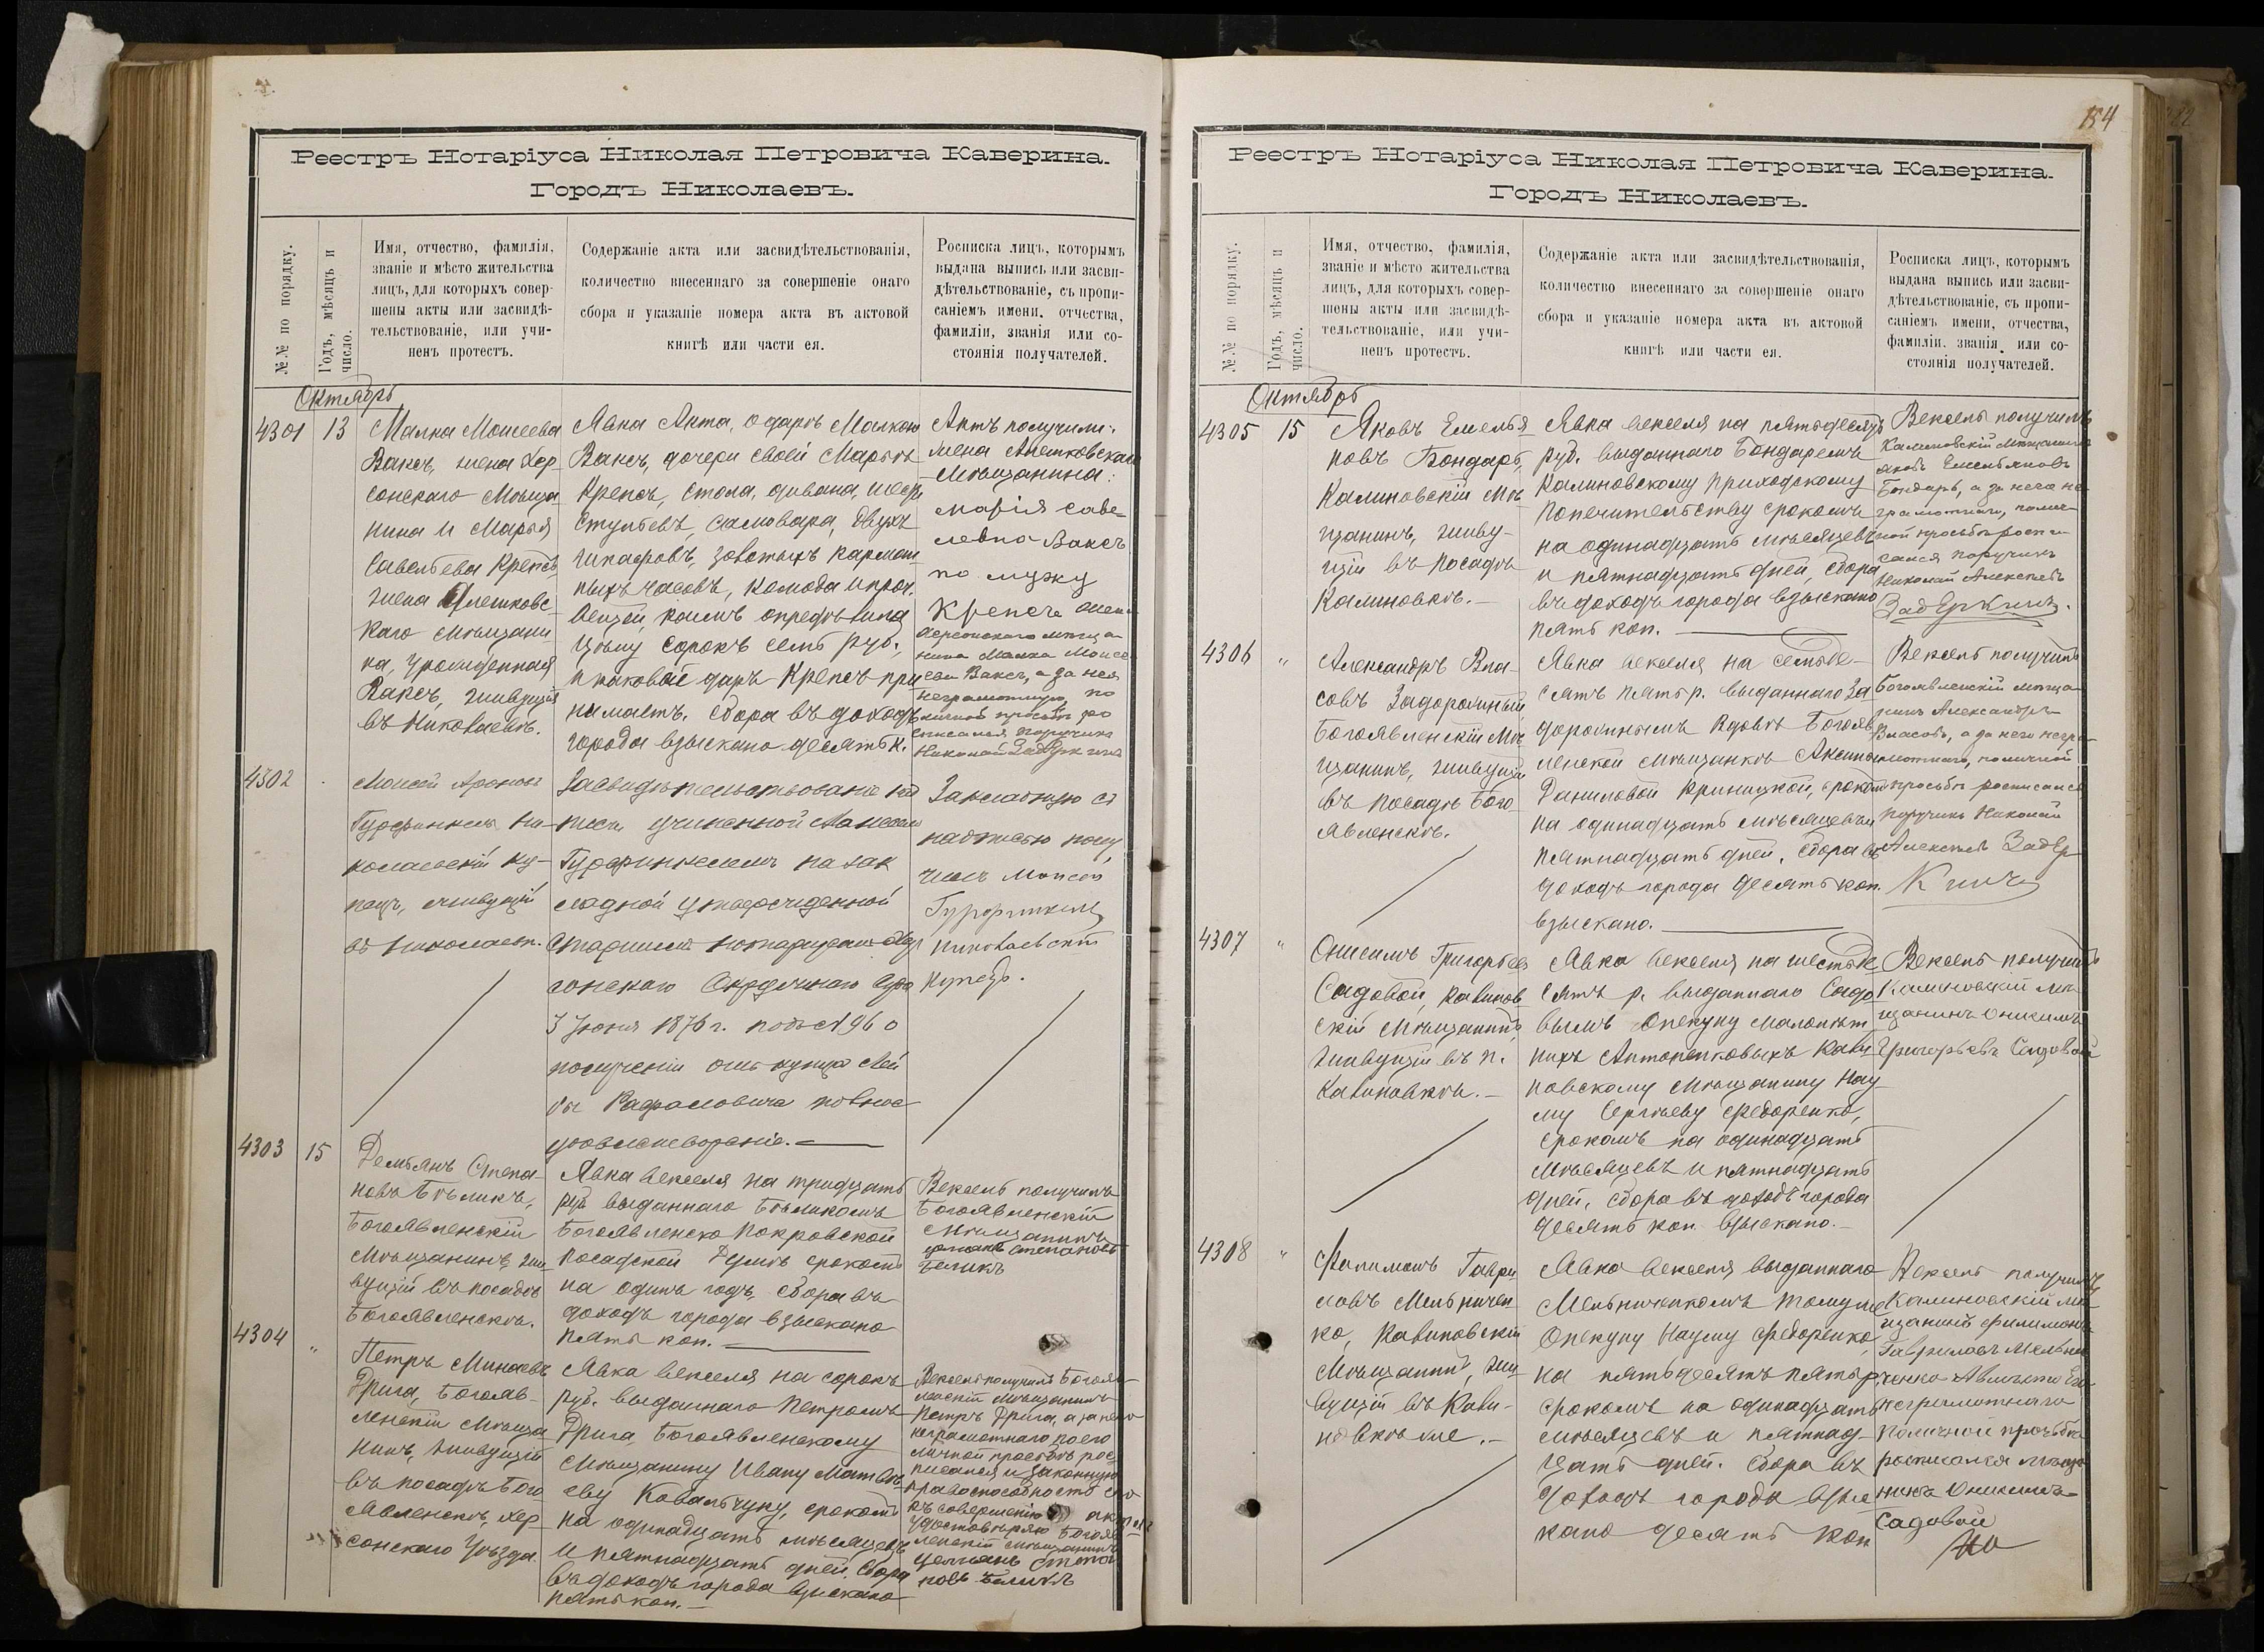 Реестръ Нотаріуса Николая Петровича Каверина.
Городъ Николаевъ.
№№ по порядку.
Годъ, мѣсяцъ и
число.
Имя, отчество, фамилія,
званіе и мѣсто жительства
лицъ, для которыхъ совер-
шены акты или засвидѣ-
тельствованіе, или учи-
ненъ протестъ.
Содержаніе акта или засвидѣтельствованія,
количество внесеннаго за совершеніе онаго
сбора и указаніе номера акта въ актовой
книгѣ или части ея.
Росписка лицъ, которымъ
выдана выпись или засви-
дѣтельствованіе, съ пропи-
саніемъ имени, отчества,
фамиліи, званія или со-
стоянія получателей.
Октябрь
4301
13
Малка Моисеева
Ваксъ, жена Хер-
сонскаго Мѣща
нина и Марья
Савельева Крепсъ,
жена Алешковс-
каго мѣщани
на, урожденная
Ваксъ, живущія
въ Николаевѣ.
Явка Акта, о дарѣ Малкою
Ваксъ, дочери своей Марьѣ
Крепсъ, стола, дивана, шести
стульевъ, самовара, двухъ
шкафовъ, золотыхъ карман
ныхъ часовъ, комода и проч.
вещей, коимъ опредѣлила
цѣну сорокъ семь руб.,
и таковой даръ Крепсъ при
нимаетъ. Сбора въ доходъ
города взыскано десять к.
Актъ получили.
жена Алешковскаго
Мѣщанина:
Марія Саве-
левна Ваксъ
по мужу
Крепсъ жена
Херсонскаго мѣща
нина Малка Моисе
ева Ваксъ, а за нея
неграмотную, по
личной просьбѣ ро
списался поручикъ
Николай ЗадЕркинъ
4302
Моисей Ароновъ
Гурфинкель Ни-
колаевскій ку-
пецъ, живущій
въ Николаевѣ.
Засвидѣтельствованіе над
писи, учиненной Моисеемъ
Гурфинкелемъ на зак
ладной утвержденной
Старшимъ нотаріусомъ Хер
сонскаго Окружнаго Суда
3 Іюня 1876 г. подъ № 196 о
полученіи отъ купца Лей
бы Рафаловича полное
удовлетвореніе.
Закладную съ
надписью полу
чилъ Моисей
Гурфинкель
Николаевскій
Купецъ.
4303
15
Демьянъ Степа-
новъ Бѣликъ,
Богоявленскій
Мѣщанинъ, жи
вущій въ посадѣ
Богоявленскѣ.
Явка векселя на тридцать
руб. выданнаго Бѣликомъ
Богоявленско Покровской
посадской Думѣ срокомъ
на одинъ годъ, сбора въ
доходъ города взыскано
пять коп.
Вексель получилъ
Богоявленскій
Мѣщанинъ
Демьянъ Степановъ
Беликъ
4304
"
Петръ Минаевъ
Дрига, Богояв-
ленскій Мѣща
нинъ, живущій
въ посадѣ Бого
явленскѣ, Хер-
сонскаго Уѣзда.
Явка векселя на сорокъ
руб. выданнаго Петромъ
Дрига, Богоявленскому
Мѣщанину Ивану Матвѣ-
еву Ковальчуку, срокомъ
на одинадцать мѣсяцевъ
и пятнадцать дней, сбора
въ доходъ города взыскано
пять коп.
Вексель получилъ Богояв-
ленскій Мѣщанинъ
Петръ Дрига, а за него
неграмотнаго по его
личной просьбѣ рос
писался и законную
правоспособность его
къ совершенію акта
удостовѣряю Богояв
ленскій мѣщанинъ
Демьянъ Степа
новъ Беликъ
184
Реестръ Нотаріуса Николая Петровича Каверина.
Городъ Николаевъ.
№№ по порядку.
Годъ, мѣсяцъ и
число.
Имя, отчество, фамилія,
званіе и мѣсто жительства
лицъ, для которыхъ совер-
шены акты или засвидѣ-
тельствованіе, или учи-
ненъ протестъ.
Содержаніе акта или засвидѣтельствованія,
количество внесеннаго за совершеніе онаго
сбора и указаніе номера акта въ актовой
книгѣ или части ея.
Росписка лицъ, которымъ
выдана выпись или засви-
дѣтельствованіе, съ пропи-
саніемъ имени, отчества,
фамиліи. званія или со-
стоянія получателей.
Октябрь
4305
15
Яковъ Емелья
новъ Бондарь,
Калиновскій Мѣ
щанинъ, живу-
щій въ посадѣ
Калиновкѣ.
Явка векселя на пятьдесятъ
руб. выданнаго Бондаремъ
Калиновскому приходскому
попечительству срокомъ
на одинадцать мѣсяцевъ
и пятнадцать дней, сбора
въ доходъ города взыскано
пять коп.
Вексель получилъ
Калиновскій Мѣщанинъ
Яковъ Емельяновъ
Бондарь, а за него не
грамотнаго, по лич-
ной просьбѣ роспи
сался поручикъ
Николай Алексѣевъ
ЗадЕркинъ.
4306
"
Александръ Вла-
совъ Задорожный
Богоявленскій Мѣ
щанинъ, живущій
въ посадѣ Бого
явленскѣ.
Явка векселя на семьде-
сятъ пять р. выданнаго За
дорожнымъ вдовѣ Богояв
ленской мѣщанкѣ Аксиньѣ
Даниловой Криницкой, срокомъ
на одинадцать мѣсяцевъ и
пятнадцать дней, сбора въ
доходъ города десять коп.
взыскано.
Вексель получилъ
Богоявленскій мѣща-
нинъ Александръ
Власовъ, а за него негра-
мотнаго, по личной
просьбѣ росписался
поручикъ Николай
Алексѣевъ ЗадЕр
Кинъ
4307
"
Онисимъ Григорьевъ
Садовой, Калинов
скій Мѣщанинъ,
живущій въ п.
Калиновкѣ.
Явка векселя на шестьде
сятъ р. выданнаго Садо
вымъ Опекуну Малолѣт
нихъ Антоненковыхъ Кали
новскому Мѣщанину Нау
му Сергѣеву Федоренко,
срокомъ на одинадцать
мѣсяцевъ и пятнадцать
дней, сбора въ доходъ города
десять коп взыскано.
Вексель получилъ
Калиновскій мѣ-
щанинъ Онисимъ
Григорьевъ Садовой
4308
"
Филимонъ Гаври
ловъ Мельничен
ко, Калиновскій
Мѣщанинъ, жи-
вущій въ Кали-
новкѣ же.
Явка векселя выданнаго
Мельниченкомъ тому же
Опекуну Науму Федоренко,
на пятьдесятъ пять р
срокомъ на одинадцать
мѣсяцевъ и пятнад-
цать дней. Сбора въ
доходъ города взыс
кано десять коп
Вексель получилъ
Калиновскій мѣ
щанинъ Филимонъ
Гавриловъ Мельни
ченко
неграмотнаго
по личной прозьбѣ
росписался мѣща
нинъ Онисимъ
Садовой